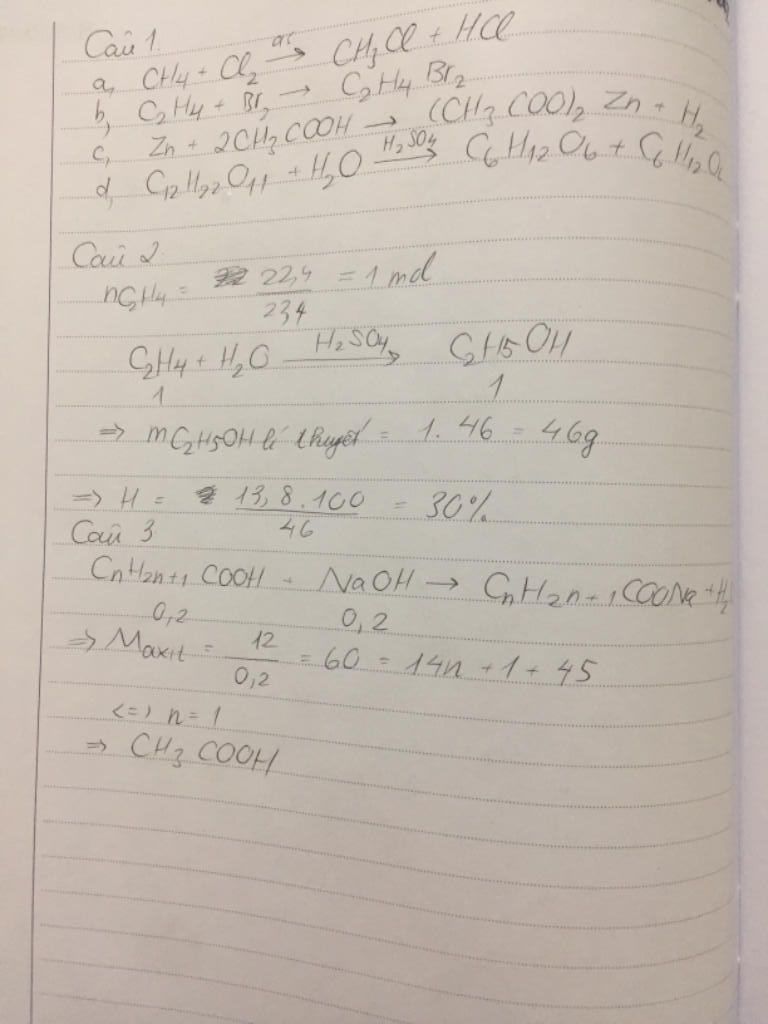 Câu 1.
a, CH4 + Cl2 as→ CH3Cl + HCl
b, C2H4 + Br2 → C2H4Br2
c, Zn + 2CH3COOH → (CH3COO)2 Zn + H2
d, C12H22O11 + H2O H2SO4→ C6H12O6 + C6H12O6
Câu 2
nC2H4 = 22,4/23,4 = 1 mol
C2H4 + H2O H2SO4→ C2H5OH
1 1
=> mC2H5OH lí thuyết = 1.46 = 46g
=> H = 13,8.100/46 = 30%
Câu 3
CnH2n+1 COOH + NaOH → CnH2n+1COONa + H2
0,2 0,2
=> Maxit = 12/0,2 = 60 = 14n + 1 + 45
<=> n = 1
=> CH3COOH